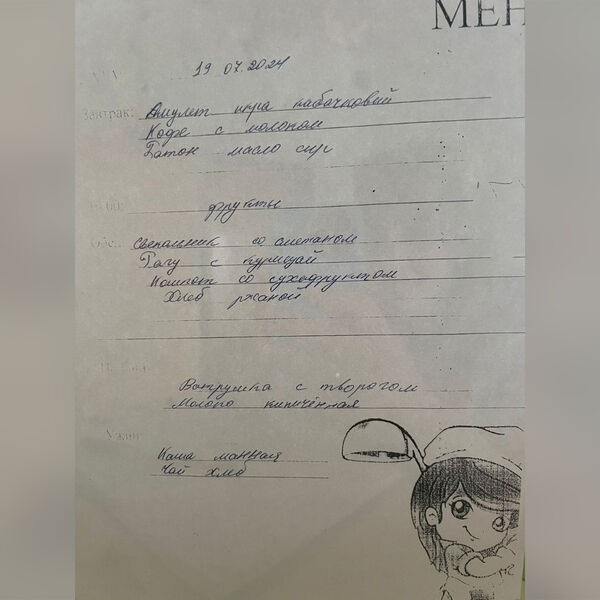 МЕН
19 07.2024
Завтрак: Омулет икра кабочковий
Кофе с молоком
Батон масло сыр
фрукты
Обе свекольник со сметаном
Рагу с курицай
Компот со сухофруктом
Хлеб ржаной
Ватрушка с творогом
Молоко кипичённая
Ужин
Каша манная
Чай хлеб